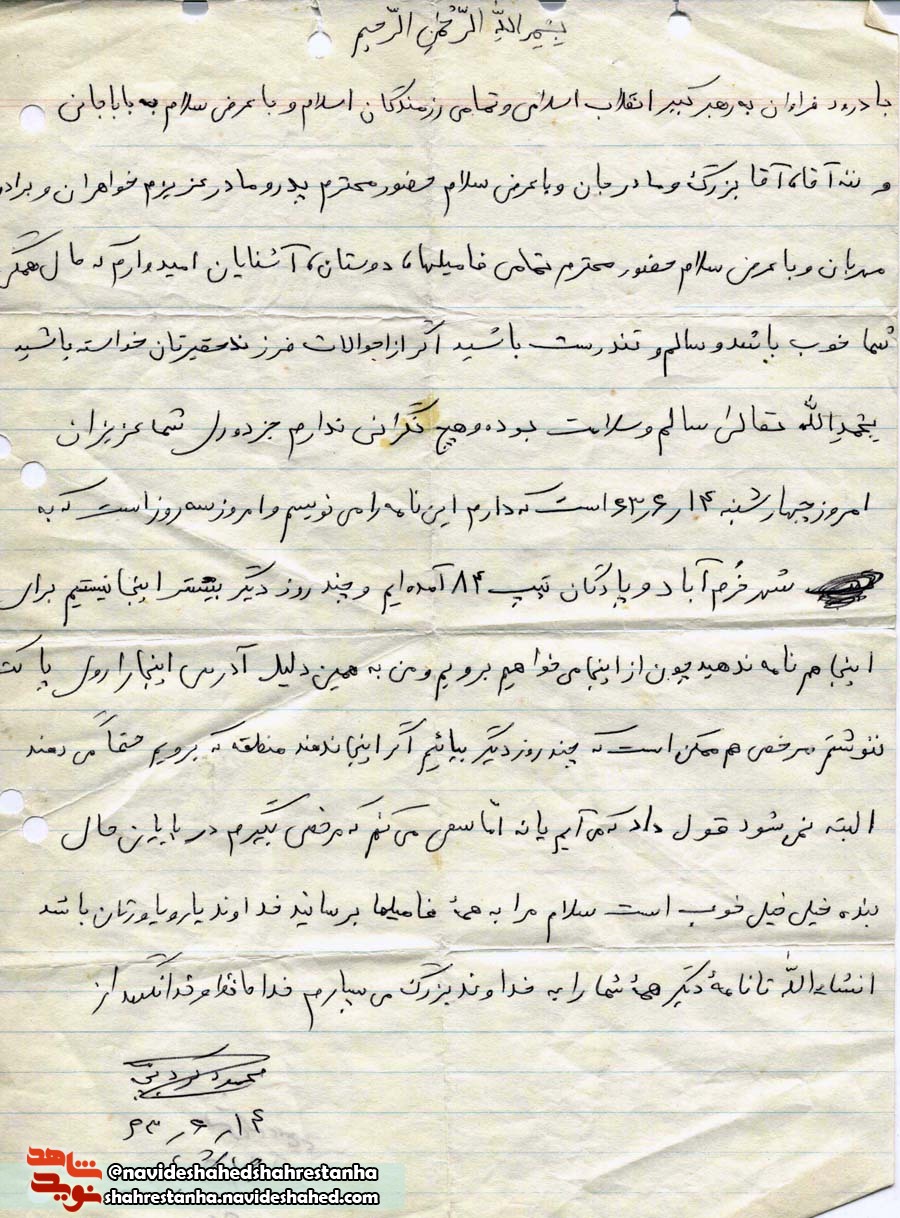 بِسْمِ اللّهِ الرَّحْمٰنِ الرَّحیم
با درود فراوان به رهبر کبیر انقلاب اسلامی و تمامی رزمندگان اسلام و با عرض سلام به باباجانی
و ننه آقا، آقا بزرگ و مادر جان و با عرض سلام حضور محترم پدر و مادر عزیزم خواهران و برادر
مهربان و با عرض سلام حضور محترم تمامی فامیلها، دوستان، آشنایان امیدوارم که حال همگی
شما خوب باشد و سالم و تندرست باشید اگر از احوالات فرزند حقیرتان خواسته باشید
بحمدِالله تعالی سالم و سلامت بوده و هیچ نگرانی ندارم جز دوری شما عزیزان
امروز چهارشنبه ۱۴ر۶ر۶۳ است که دارم این نامه را می نویسم و امروز سه روز است که به
شهر خُرم آباد و پادگان تیپ ۸۴ آمده ایم و چند روز دیگر بیشتر اینجا نیستیم برای
اینجا هم نامه ندهید چون از اینجا می خواهیم برویم و من به همین دلیل آدرس اینجا را روی پاکت
ننوشتم مرخصی هم ممکن است که چند روز دیگر بیائیم اگر اینجا ندهند منطقه که برویم حتماً می دهند
البته نمی شود قول داد که می آیم یا نه امّا سعی می کنم که مرخصی بگیرم در پایان حال
بنده خیلی خیلی خوب است سلام مرا به همهٔ فامیلها برسانید خداوند یار و یاورتان باشد
انشاءاللّه تا نامهٔ دیگر همهٔ شما را به خداوند بزرگ می سپارم خدا حافظ و خدا نگهدار
محمد
۱۴ر۶ر۶۳
شاهد
نوید
@navideshahedshahrestanha
shahrestanha.navideshahed.com